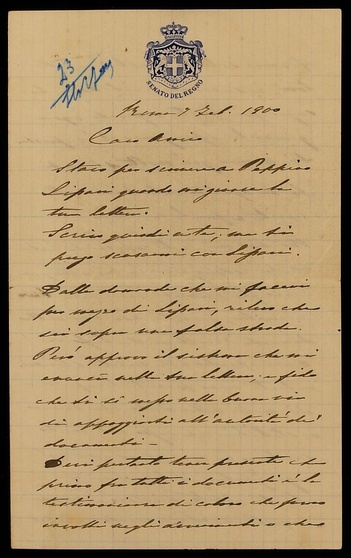 23
SENATO DEL REGNO
Roma 7 Feb. 1900
Caro Amico
Stavo per scrivere a Peppino
Lipari quando mi giunse la
tua lettera.
Scrivo quindi a te, ma ti
prego scusarmi con Lipari.
Dalle domande che mi facevi
per mezzo di Lipari, rilevo che
sei sopra una falsa strada.
Però approvo il sistema che mi
nella tua lettera, e
che ti sei messo nella buona via
di appoggiarti all'autorità dei
documenti –
Devi pertanto tener presente che
primo fra tutti i documenti è la
testimonianza di coloro che furono
involti negli avvenimenti o che